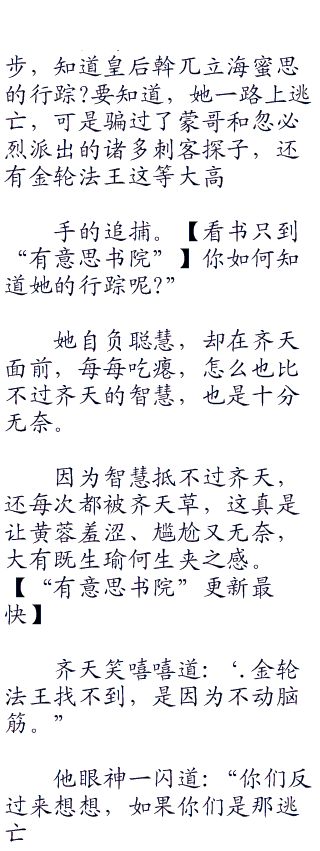 步，知道皇后斡兀立海蜜思
的行踪?要知道，她一路上逃
亡，可是骗过了蒙哥和忽必
烈派出的诸多刺客探子，还
有金轮法王这等大高
手的追捕。【看书只到
“有意思书院”】你如何知
道她的行踪呢?”
她自负聪慧，却在齐天
面前，每每吃瘪，怎么也比
不过齐天的智慧，也是十分
无奈。
因为智慧抵不过齐天，
还每次都被齐天草，这真是
让黄蓉羞涩、尴尬又无奈，
大有既生瑜何生夹之感。
【“有意思书院”更新最
快】
齐天笑嘻嘻道：‘.金轮
法王找不到，是因为不动脑
筋。”
他眼神一闪道：“你们反
过来想想，如果你们是那逃
亡